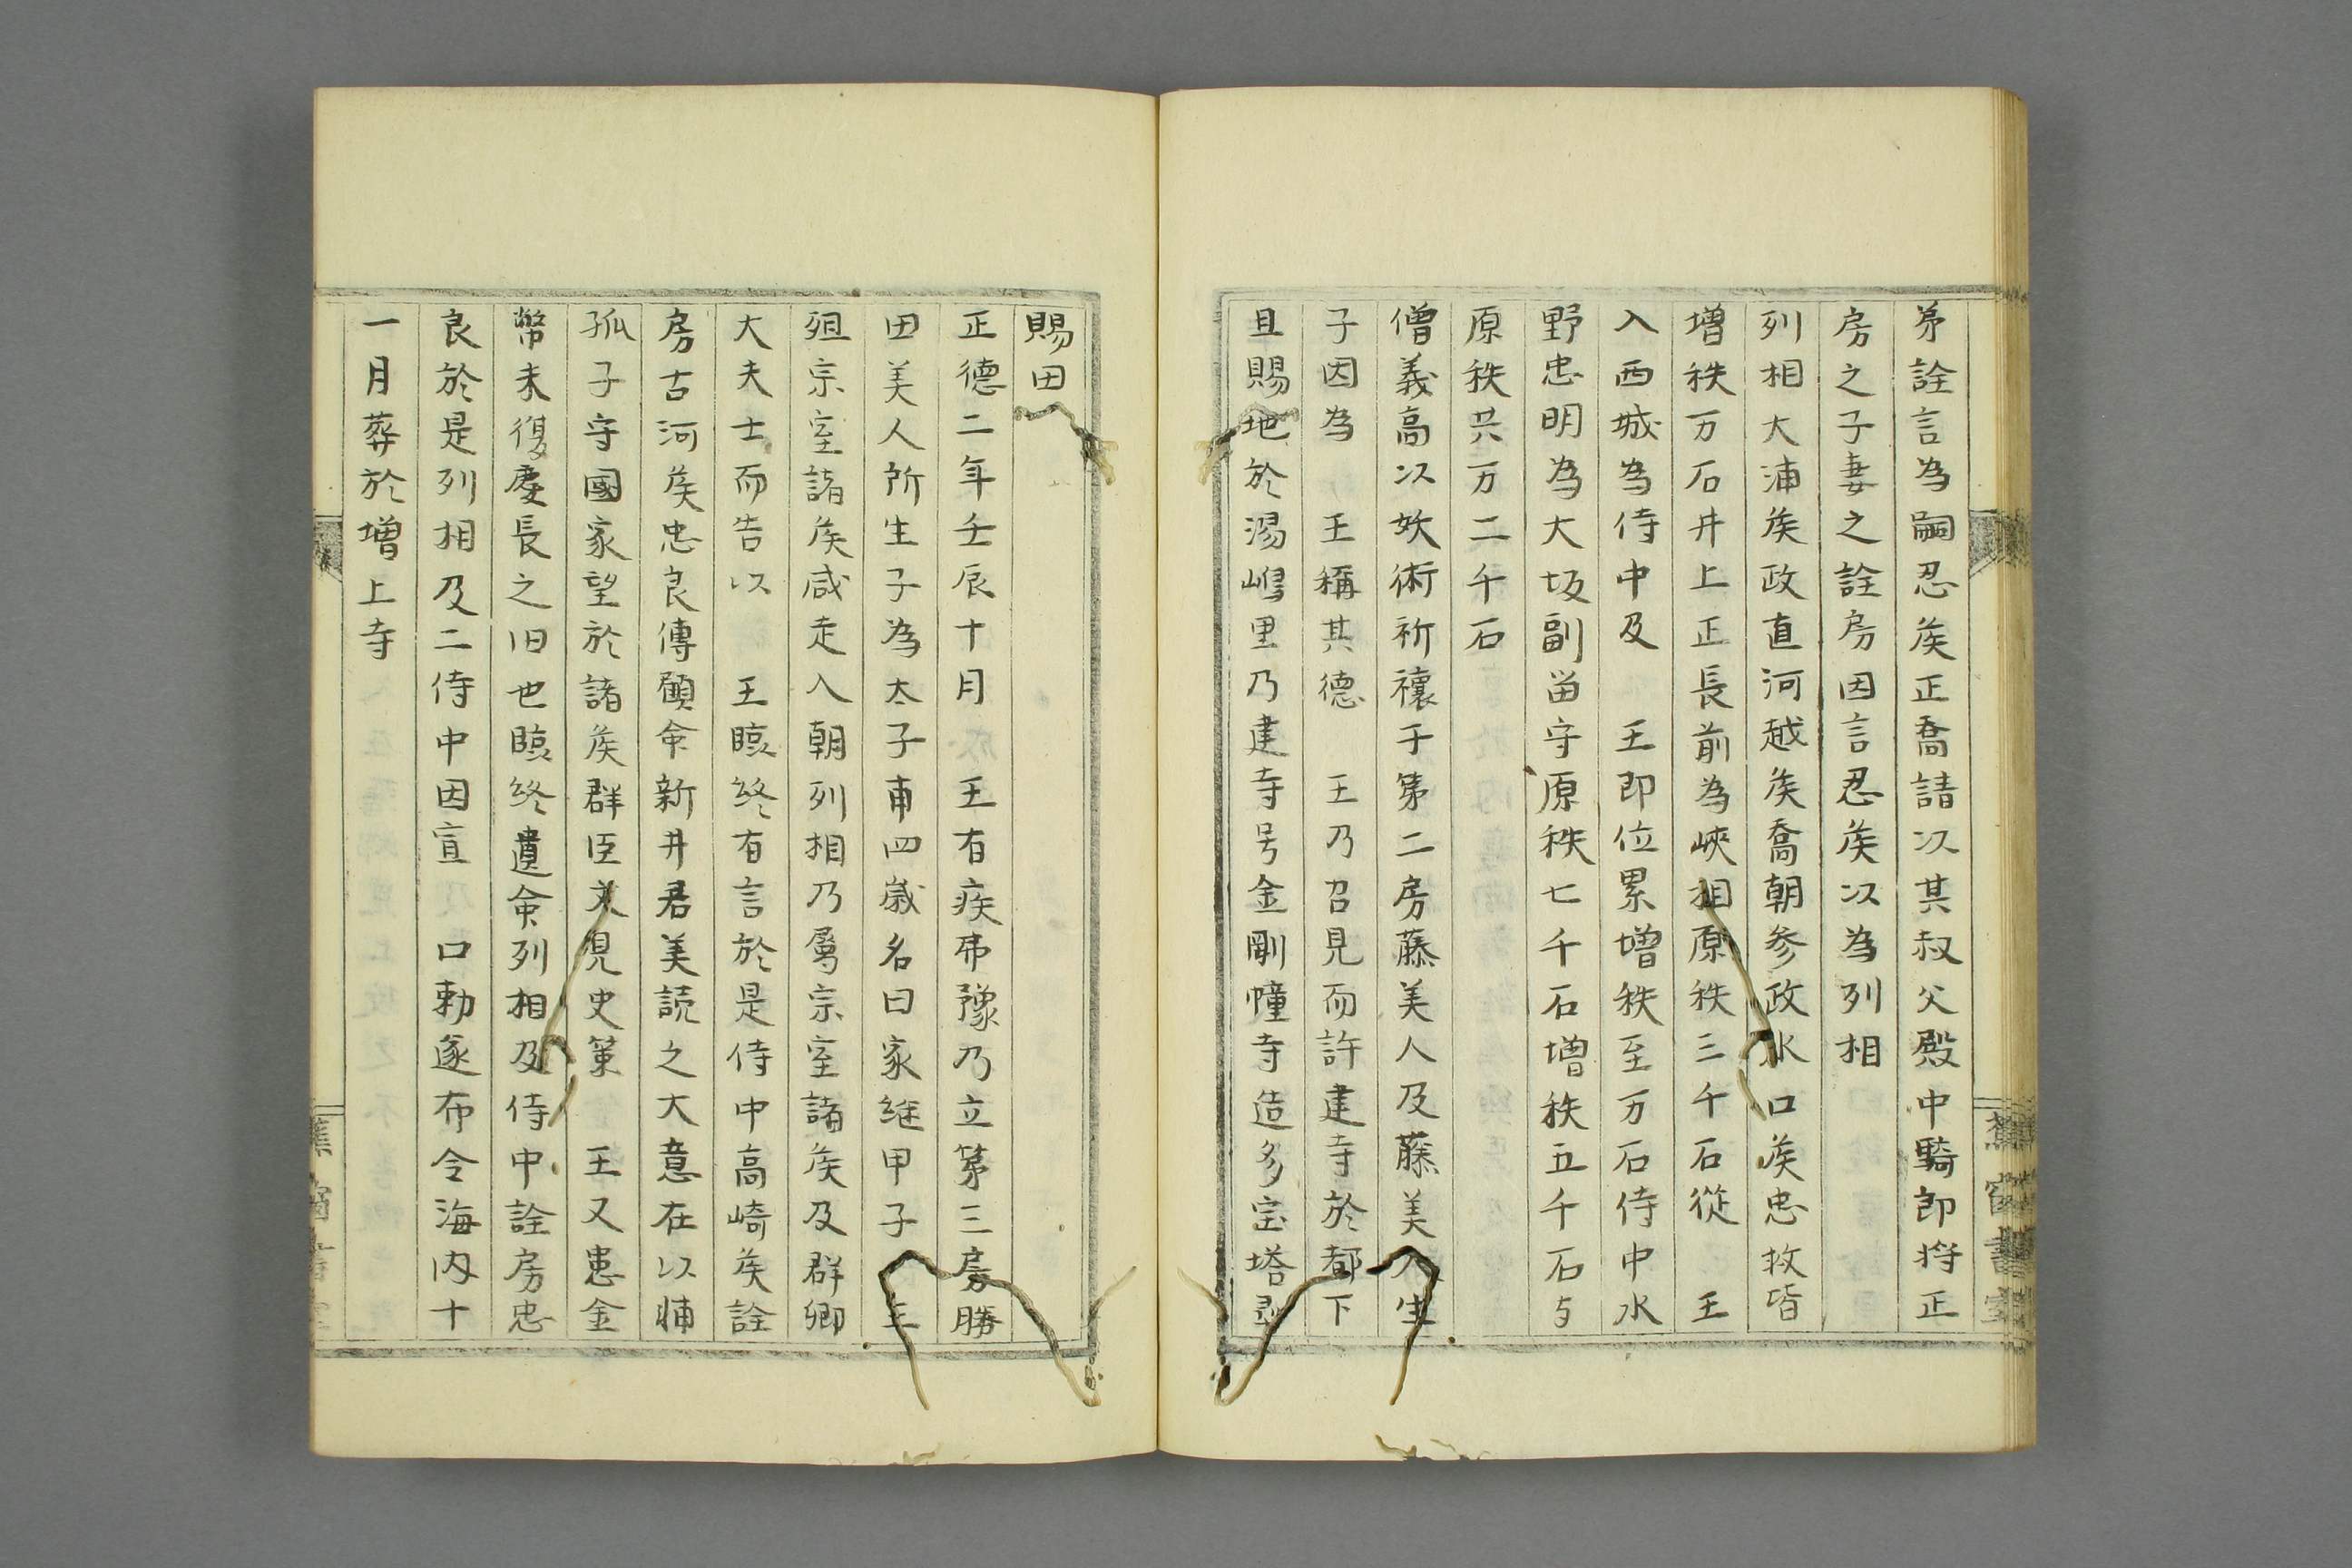 弟詮言為嗣忍侯正喬請以其叔父殿中騎郎将正
房之子妻之詮房因言忍侯以為列相
列相大浦侯政直河越侯喬朝参政水口侯忠救皆
増秩万石井上正長前為峽相原秩三千石從　王
入西城為侍中及　王即位累増秩至万石侍中水
野忠明為大坂副留守原秩七千石増秩五千石与
原秩共万二千石
僧義高以妖術祈禳于第二房藤美人及藤美人生
子因為　王稱其德　王乃召見而許建寺於都下
且賜地於湯嶋里乃建寺号金剛幢寺造多宝塔
賜田
正德二年壬辰十月　王有疾弗豫乃立第三房勝
田美人所生子為太子甫四歳名曰家継甲子　王
殂宗室諸侯咸走入朝列相乃屬宗室諸侯及群卿
大夫士而告以　王臨終有言於是侍中高崎侯詮
房古河侯忠良傳顧命新井君美読之大意在以輔
孤子守國家望於諸侯群臣文見史策　王又患金
幣未復慶長之旧也臨終遺命列相及侍中詮房忠
良於是列相及二侍中因宣　口勅遂布令海内十
一月葬於増上寺
蕉窗書室